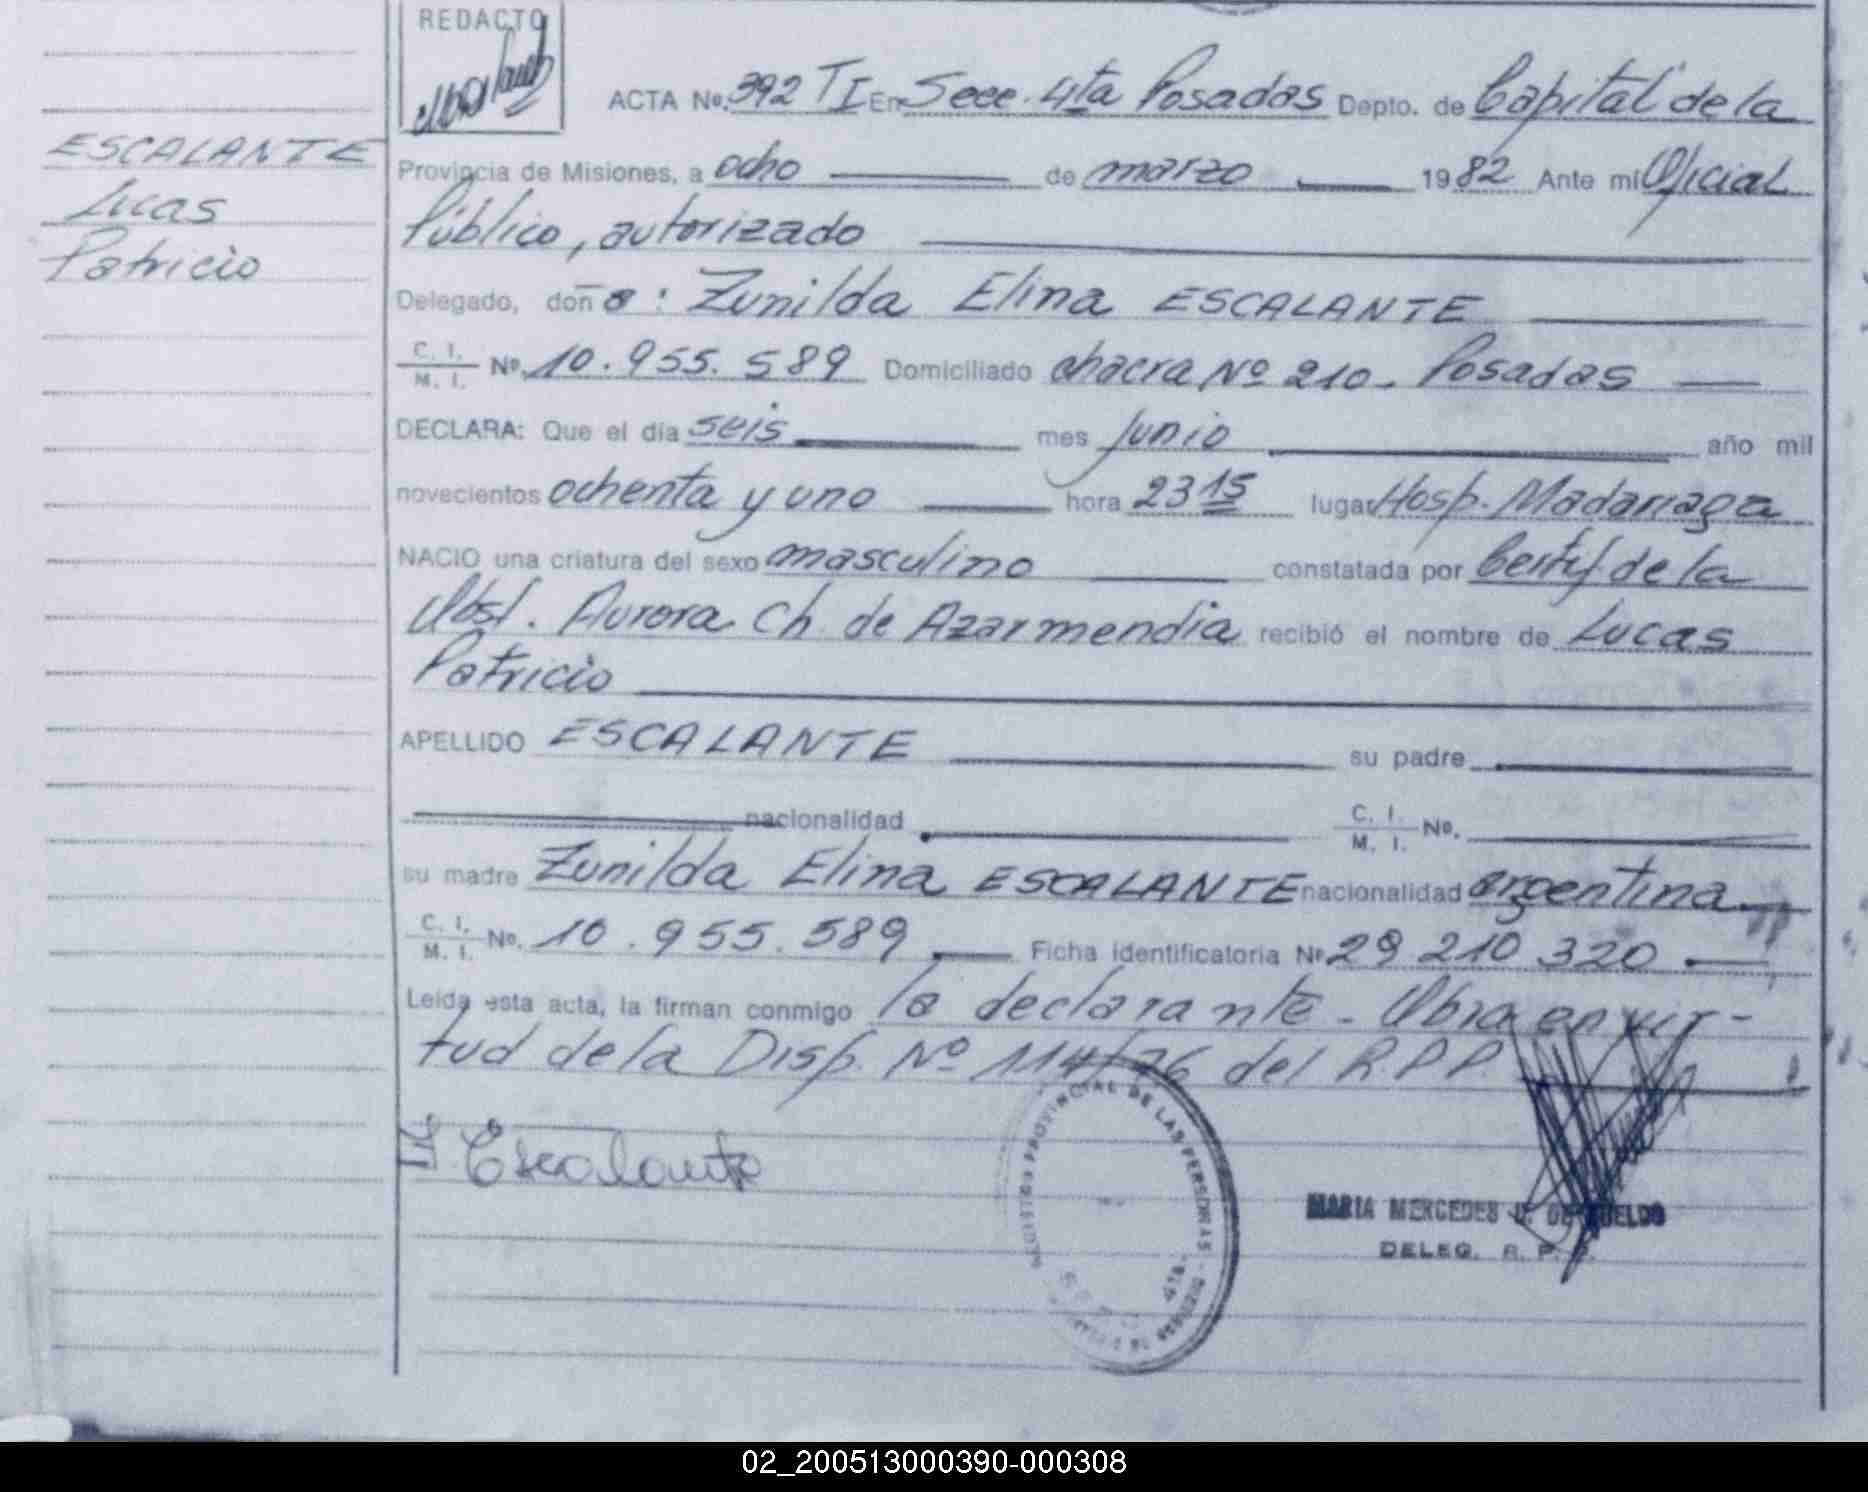 REDACTO
ACTA No. 392 TI En Secc. 4ta Posadas Depto. de Capital de la
ESCALANTE
Lucas
Patricio
Provincia de Misiones, a ocho de marzo 1982 Ante mi Oficial
Público, autorizado
Delegado, doña: Zunilda Elina ESCALANTE
C. I. / M. I. No. 10.955.589 Domiciliado chacra Nº 210. Posadas
DECLARA: Que el día seis mes junio año mil
novecientos ochenta y uno hora 23 15 lugar Hosp. Madariaga
NACIO una criatura del sexo masculino constatada por Certif. de la
Obst. Aurora Ch. de Azarmendia recibió el nombre de Lucas
Patricio
APELLIDO ESCALANTE su padre
nacionalidad C. I. / M. I. No.
su madre Zunilda Elina ESCALANTE nacionalidad argentina
C. I. / M. I. No. 10.955.589 Ficha identificatoria Nº 29 210 320
Leída esta acta, la firman conmigo la declarante. Obra en vir-
tud de la Disp. Nº 114/76 del R.P.P.
Escalante
PROVINCIAL DE LAS PERSONAS
4TA.
MARIA MERCEDES
DELEG. R. P.
02_200513000390-000308